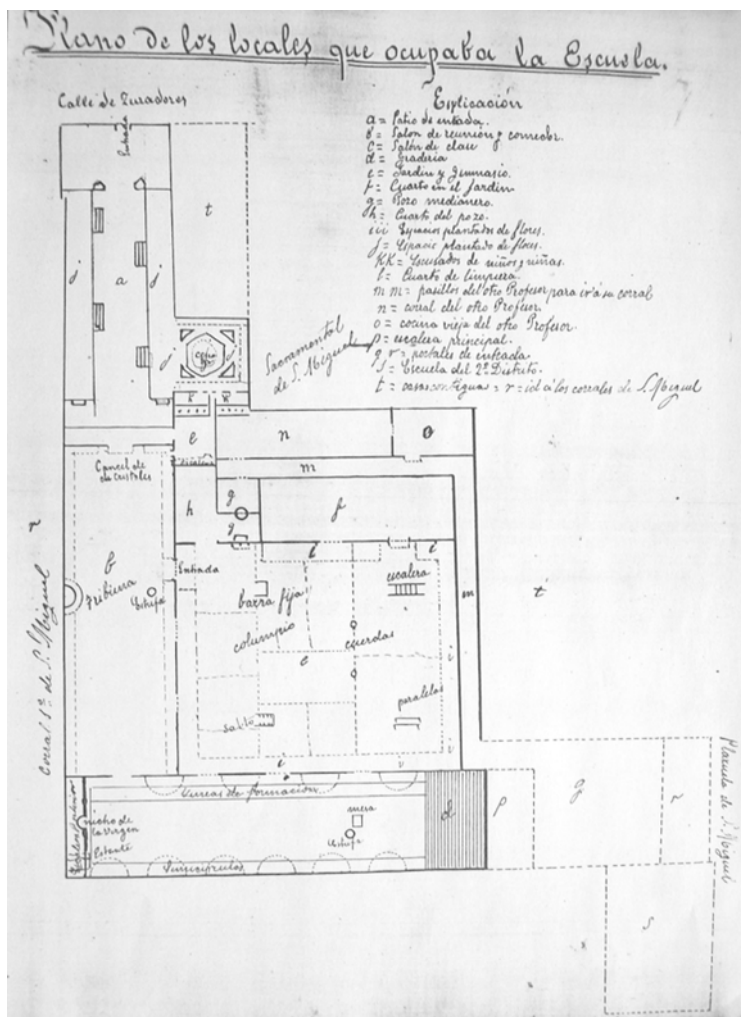 Plano de los locales que ocupaba la Escuela.
Calle de Turadores
Entrada
Esplicación
a = Patio de entrada.
b = Salón de reunión y comedor.
c = Salón de clase
d = Gradería
e = Jardín y Gimnasio.
f = Cuarto en el Jardín
g = Pozo medianero.
h = Cuarto del pozo.
iii Espacios plantados de flores.
j = Espacio plantado de flores.
KK = Escusados de niños y niñas.
l = Cuarto de limpieza.
m m = pasillos del otro Profesor para ir á su corral
n = corral del otro Profesor.
o = cocina vieja del otro Profesor.
p = escalera principal.
q r = portales de entrada.
s = Escuela del 2º Distrito.
t = casas contiguas, r = id á los corrales de S. Miguel
Sacramental
de S. Miguel
t
a
j
j
j
n
o
e
m
Cancel de
cristales
h
g
g
f
b
Tribuna
Estufa
Entrada
i
i
barra fija
columpio
escalera
cuerdas
e
m
t
salto
paralelas
i
i
i
i
corral 1º de S. Miguel
r
Lineas de formación
nicho de
la Virgen
Estante
mesa
Estufa
Semicirculos
d
p
q
r
Plazuela de S. Miguel
s